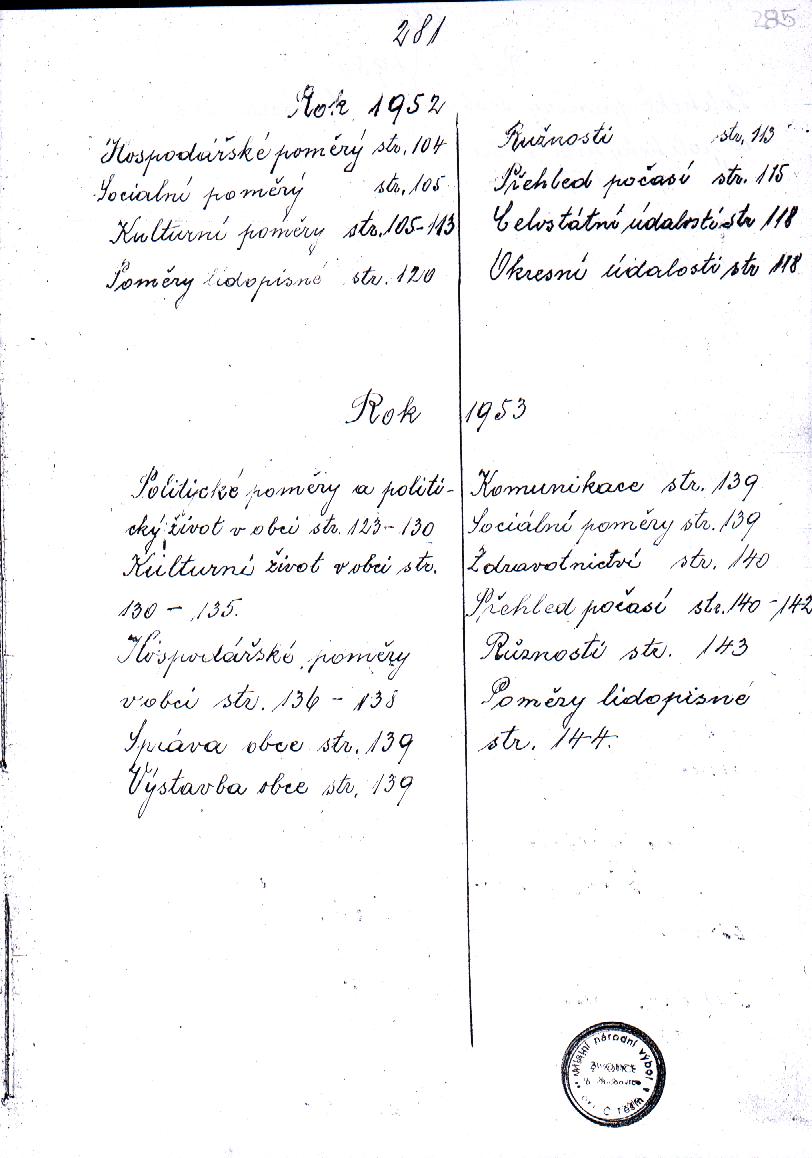 281
285
Rok 1952
Hospodářské poměry str. 104
Socialní poměry str. 105
Kulturní poměry str. 105-113
Poměry lidopisné str. 120
Ružnosti str. 113
Přehled počasí str. 115
Celostátní údalosti str 118
Okresní údalosti str 118
Rok 1953
Politické poměry a politi-
cký život v obci str. 123-130
Kulturní život v obci str.
130 - 135.
Hospodářské poměry
v obci str. 136 - 138
Správa obce str. 139
Výstavba obce str. 139
Komunikace str. 139
Sociální poměry str. 139
Zdravotnictví str. 140
Přehled počasí str. 140-142
Různosti str. 143
Poměry lidopisné
str. 144.
Místní národní výbor